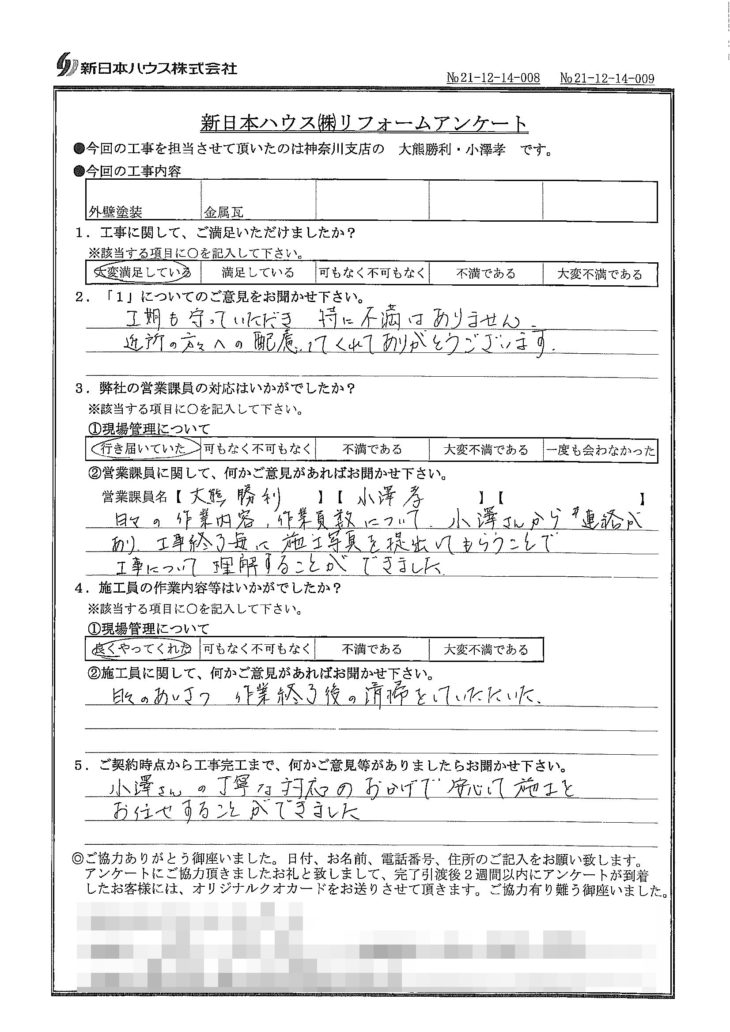 新日本ハウス株式会社
№21-12-14-008 №21-12-14-009
新日本ハウス㈱リフォームアンケート
●今回の工事を担当させて頂いたのは神奈川支店の 大熊勝利・小澤孝 です。
●今回の工事内容
外壁塗装 金属瓦
1．工事に関して、ご満足いただけましたか？
※該当する項目に○を記入して下さい。
大変満足している 満足している 可もなく不可もなく 不満である 大変不満である
2．「1」についてのご意見をお聞かせ下さい。
工期も守っていただき 特に不満はありません。
近所の方々への配慮してくれてありがとうございます。
3．弊社の営業課員の対応はいかがでしたか？
※該当する項目に○を記入して下さい。
①現場管理について
行き届いていた 可もなく不可もなく 不満である 大変不満である 一度も会わなかった
②営業課員に関して、何かご意見があればお聞かせ下さい。
営業課員名【大熊 勝利 】【 小澤 孝 】【 】
日々の作業内容,作業員数について、小澤さんから連絡が
あり、工事終了毎に施工写真を提出してもらうことで
工事について理解することができました
4．施工員の作業内容等はいかがでしたか？
※該当する項目に○を記入して下さい。
①現場管理について
良くやってくれた 可もなく不可もなく 不満である 大変不満である
②施工員に関して、何かご意見があればお聞かせ下さい。
日々のあいさつ 作業終了後の清掃をしていただいた。
5．ご契約時点から工事完工まで、何かご意見等がありましたらお聞かせ下さい。
小澤さんの丁寧な対応のおかげで安心して施工を
お任せすることができました
◎ご協力ありがとう御座いました。日付、お名前、電話番号、住所のご記入をお願い致します。
アンケートにご協力頂きましたお礼と致しまして、完了引渡後２週間以内にアンケートが到着
したお客様には、オリジナルクオカードをお送りさせて頂きます。ご協力有り難う御座いました。